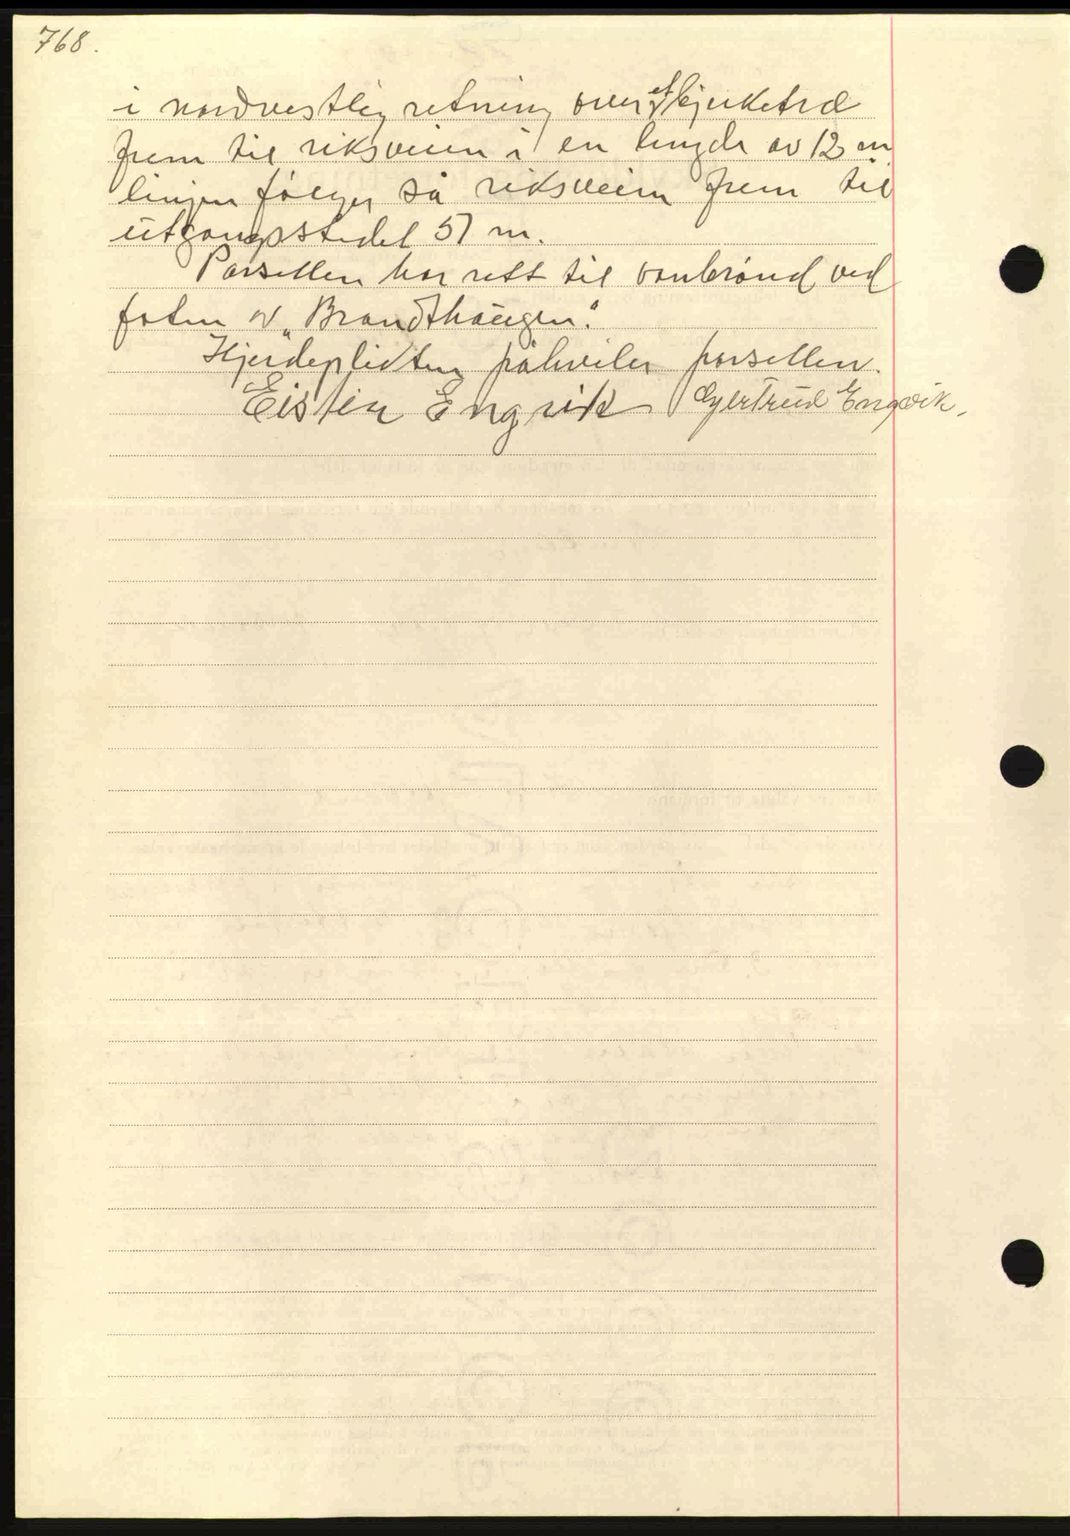 768.
i nordvestlig retning over et bjerketræ
frem til riksveien i en lengde av 12 m
linjen følger så riksveien frem til
utgangsstedet 57 m.
Parsellen har rett til vanbrønd ved
foten av „Brandthaugen."
Hjerdeplikten påhviler parsellen.
Eistein Engvik Gjertrud Engvik.